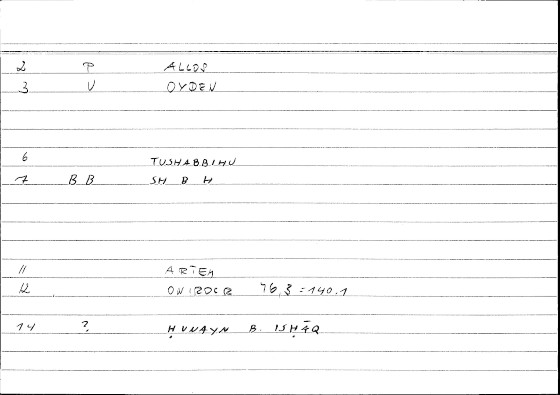 2 P ALLOS
3 V OYDEN
6 TUSHABBIHU
7 B B SH B H
11 ARTEM
12 ONIROCR 76,3 = 140.1
14 ? ḤUNAYN B. ISḤĀQ